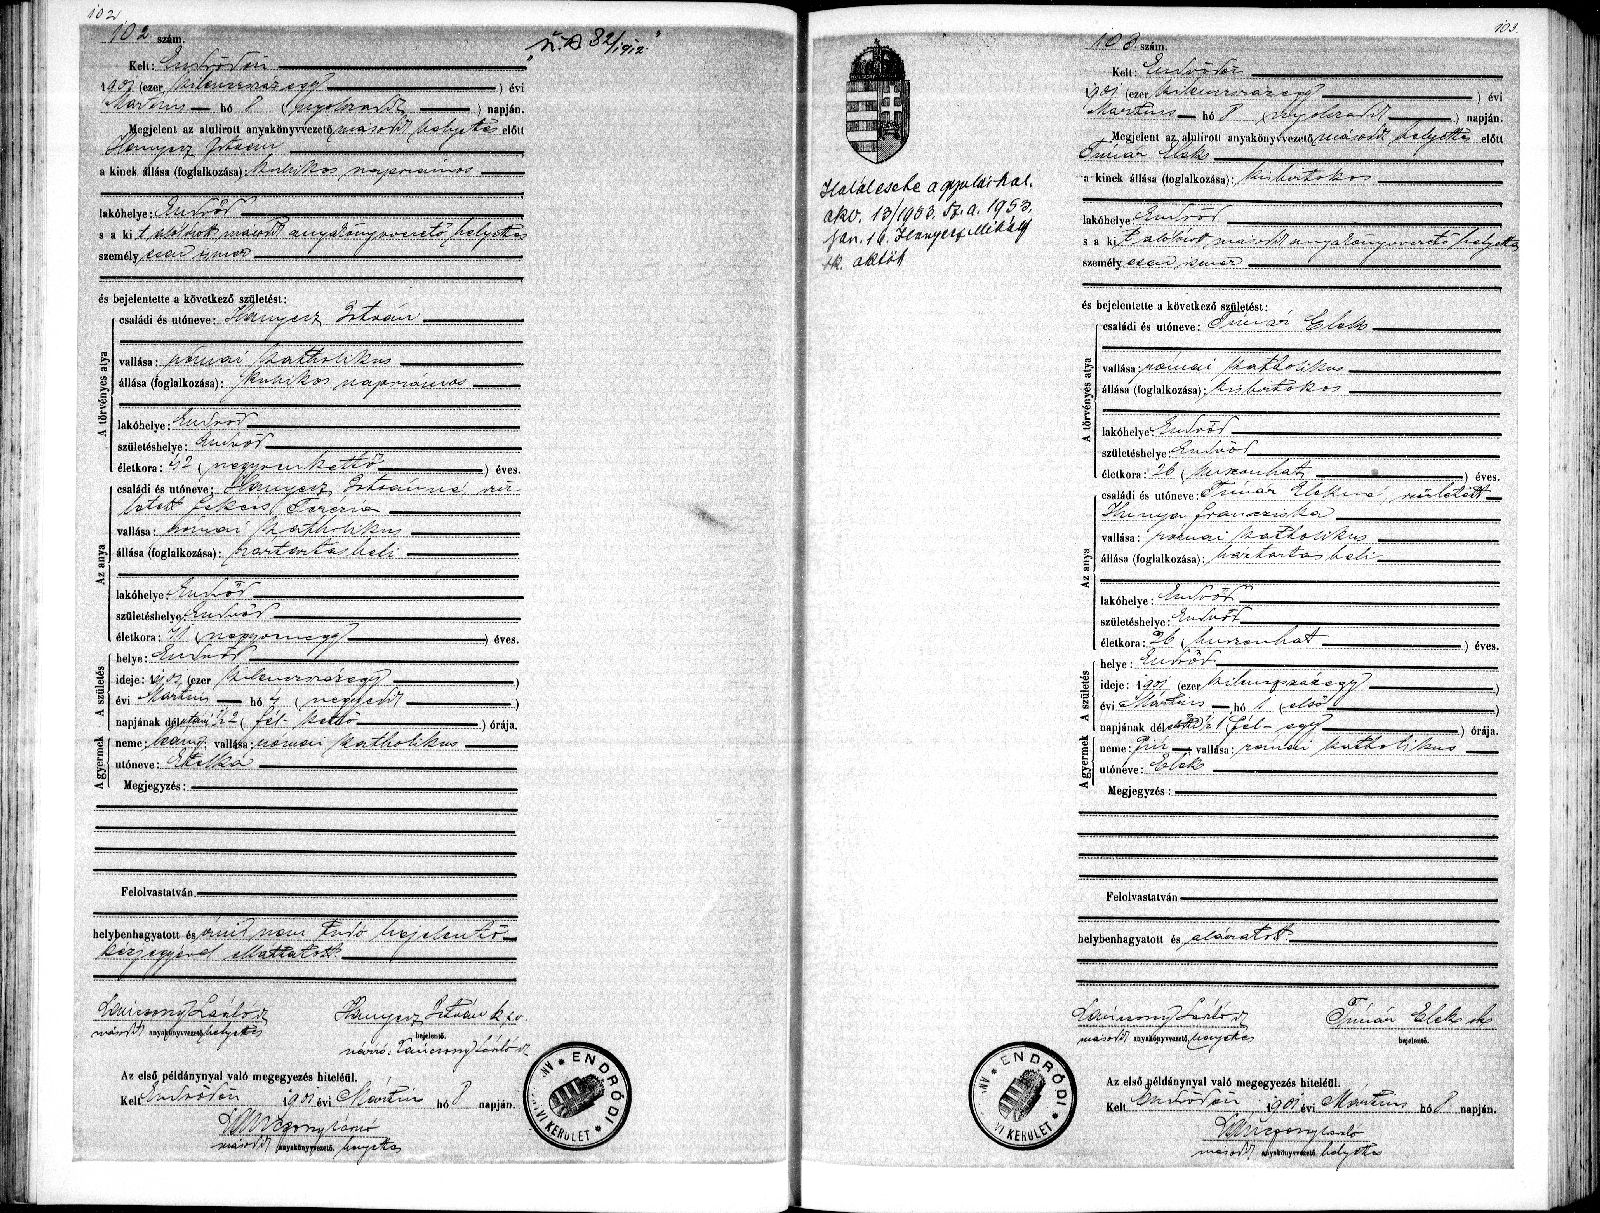 102
102 szám.
Kelt: Endrődön
1901 (ezer kilenczszázegy ) évi
Martius hó 8 ( nyolczadik ) napján.
Megjelent az alulirott anyakönyvvezető másod helyettes előtt
Hanyecz István
a kinek állása (foglalkozása): kubikos napszámos
lakóhelye: Endrőd
s a kit alólirott másod anyakönyvvezető helyettes
személyesen ismer
és bejelentette a következő születést:
A törvényes atya
családi és utóneve: Hanyecz István
vallása: római katholikus
állása (foglalkozása): kubikos napszámos
lakóhelye: Endrőd
születéshelye: Endrőd
életkora: 42 ( negyvenkettő ) éves.
Az anya
családi és utóneve: Hanyecz Istvánné szü-
letett Terézia
vallása: római katholikus
állása (foglalkozása): háztartásbeli
lakóhelye: Endrőd
születéshelye: Endrőd
életkora: 41 ( negyvenegy ) éves.
A születés
helye: Endrőd
ideje: 1901 (ezer kilenczszázegy )
évi Martius hó 4 ( negyedik )
napjának délutáni 1/2 2 ( fél- kettő ) órája.
A gyermek
neme: leány; vallása: római katholikus
utóneve: Etelka
Megjegyzés:
Felolvastatván
helybenhagyatott és írni nem tudó bejelentő
kézjegyével elláttatott
Láncsony László
másod anyakönyvvezető helyettes
Hanyecz István
bejelentő.
névíró: Láncsony László
Az első példánynyal való megegyezés hiteléül.
Kelt Endrődön 1901 évi Mártius hó 8 napján.
Láncsony László
másod anyakönyvvezető helyettes
82/1912
ENDRŐDI
KERÜLET
103
103 szám.
Kelt: Endrődön
1901 (ezer kilenczszázegy ) évi
Martius hó 8 ( nyolczadik ) napján.
Megjelent az alulirott anyakönyvvezető másod helyettes előtt
Tímár Elek
a kinek állása (foglalkozása): kisbirtokos
lakóhelye: Endrőd
s a kit alólirott másod anyakönyvvezető helyettes
személyesen ismer
és bejelentette a következő születést:
A törvényes atya
családi és utóneve: Tímár Elek
vallása: római katholikus
állása (foglalkozása): kisbirtokos
lakóhelye: Endrőd
születéshelye: Endrőd
életkora: 26 ( huszonhat ) éves.
Az anya
családi és utóneve: Tímár Elekné, született
Hunya Francziska
vallása: római katholikus
állása (foglalkozása): háztartásbeli
lakóhelye: Endrőd
születéshelye: Endrőd
életkora: 26 ( huszonhat ) éves.
A születés
helye: Endrőd
ideje: 1901 (ezer kilenczszázegy )
évi Mártius hó 1 ( első )
napjának dél 1 ( fél- egy ) órája.
A gyermek
neme: fiú vallása: római katholikus
utóneve: Elek
Megjegyzés:
Felolvastatván
helybenhagyatott és aláíratott
Láncsony László
másod anyakönyvvezető helyettes
Tímár Elek
bejelentő.
Az első példánynyal való megegyezés hiteléül.
Kelt Endrődön 1901 évi Mártius hó 8 napján.
Láncsony László
másod anyakönyvvezető helyettes
Halálesete a gyulai hal.
akv. 13/1953. a. 1953.
jan. 16. Hanyecz Mihály
aktát
ENDRŐDI
KERÜLET